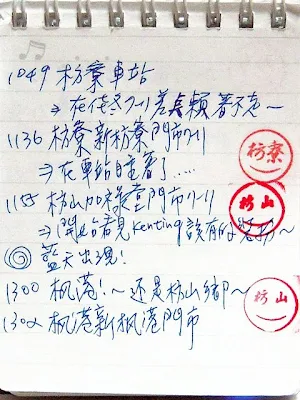 1049 枋寮車站
⇒ 在佳冬7-11差点賴著不走~
1136 枋寮新枋寮門市7-11
⇒ 在車站睡著了.....
1155 枋山加祿堂門市7-11
⇒ 開始看見Kenting該有的~
藍天出現!
1300 楓港!~ 还是枋山鄉~
1302 楓港新楓港門市
枋寮
枋山
枋山